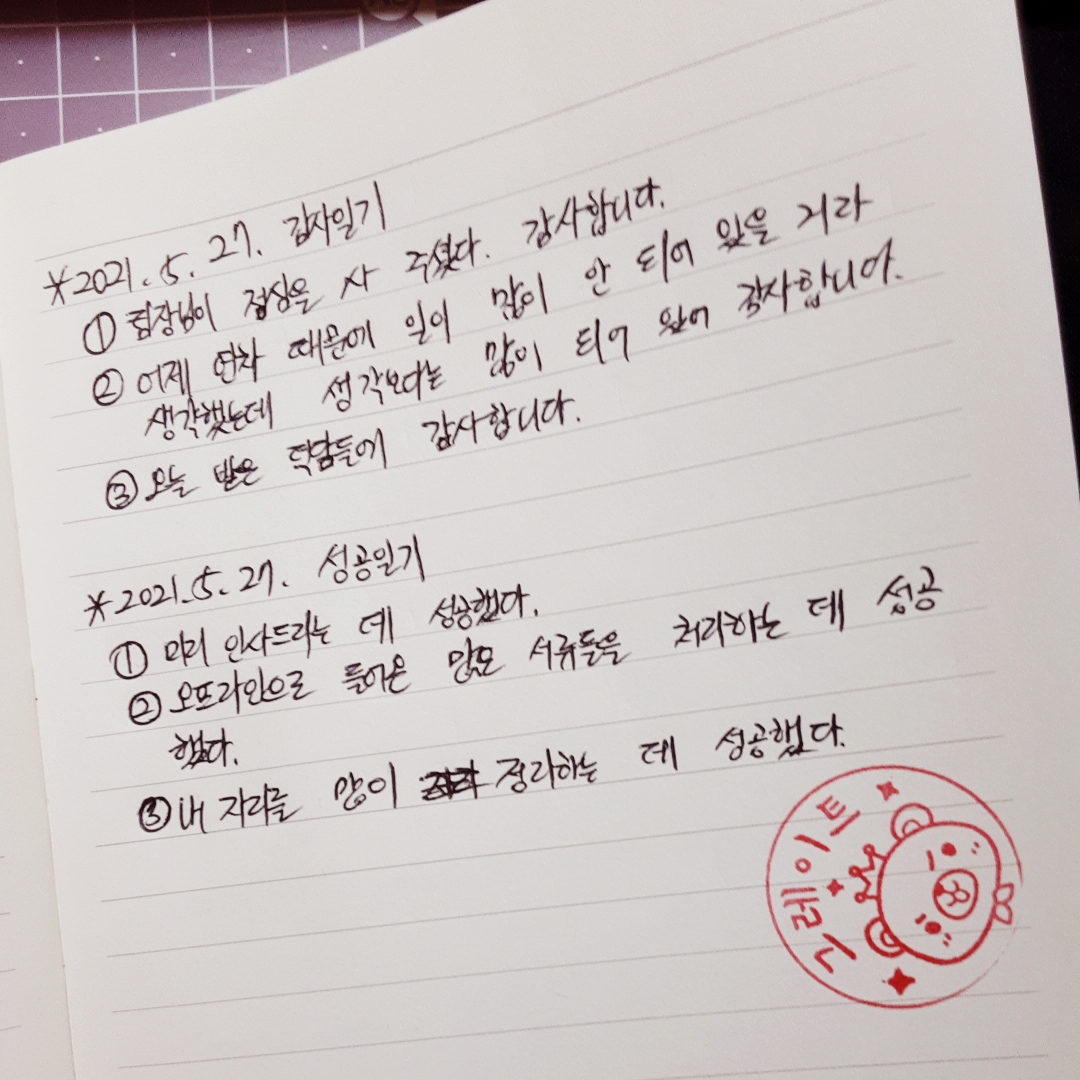 *2021.5.27. 감사일기
① 팀장님이 점심을 사 주셨다. 감사합니다.
② 어제 연차 때문에 일이 많이 안 되어 있을 거라
생각했는데 생각보다는 많이 되어 있어 감사합니다.
③ 오늘 받은 덕담들에 감사합니다.
*2021.5.27. 성공일기
① 미리 인사드리는 데 성공했다.
② 오프라인으로 들어온 많은 서류들을 처리하는 데 성공
했다.
③ 내 자리를 많이 정리하는 데 성공했다.
그레이트